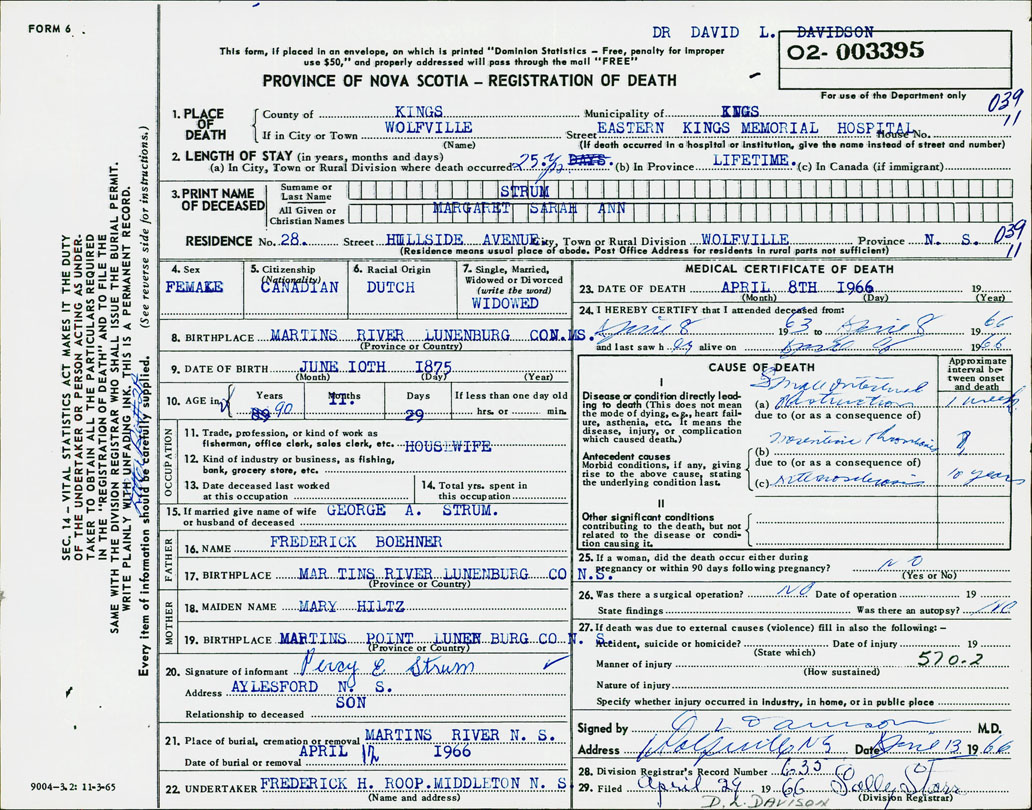 FORM 6
DR DAVID L. DAVIDSON
This form, if placed in an envelope, on which is printed "Dominion Statistics – Free, penalty for improper
use $50," and properly addressed will pass through the mail "FREE"
02- 003395
PROVINCE OF NOVA SCOTIA – REGISTRATION OF DEATH
For use of the Department only
039
11
1. PLACE OF DEATH
County of KINGS Municipality of KINGS
If in City or Town WOLFVILLE Street EASTERN KINGS MEMORIAL HOSPITAL House No.
(Name) (If death occurred in a hospital or institution, give the name instead of street and number)
2. LENGTH OF STAY (in years, months and days)
(a) In City, Town or Rural Division where death occurred 25 yrs DAYS. (b) In Province LIFETIME. (c) In Canada (if immigrant)
3. PRINT NAME OF DECEASED
Surname or Last Name STRUM
All Given or Christian Names MARGARET SARAH ANN
RESIDENCE No. 28. Street HILLSIDE AVENUE City, Town or Rural Division WOLFVILLE Province N. S.
(Residence means usual place of abode. Post Office Address for residents in rural parts not sufficient)
039
11
4. Sex
FEMALE
5. Citizenship
(Nationality)
CANADIAN
6. Racial Origin
DUTCH
7. Single, Married,
Widowed or Divorced
(write the word)
WIDOWED
8. BIRTHPLACE MARTINS RIVER LUNENBURG CON.MS.
(Province or Country)
9. DATE OF BIRTH JUNE 10TH 1875
(Month) (Day) (Year)
10. AGE in
Years 89 90
Months 11.
Days 29
If less than one day old
hrs. or min.
OCCUPATION
11. Trade, profession, or kind of work as
fisherman, office clerk, sales clerk, etc. HOUSEWIFE
12. Kind of industry or business, as fishing,
bank, grocery store, etc.
13. Date deceased last worked
at this occupation
14. Total yrs. spent in
this occupation
15. If married give name of wife
or husband of deceased GEORGE A. STRUM.
FATHER
16. NAME FREDERICK BOEHNER
17. BIRTHPLACE MAR TINS RIVER LUNENBURG CO N.S.
(Province or Country)
MOTHER
18. MAIDEN NAME MARY HILTZ
19. BIRTHPLACE MARTINS POINT LUNEN BURG CO N. S.
(Province or Country)
20. Signature of informant Percy E Strum
Address AYLESFORD N. S.
SON
Relationship to deceased
21. Place of burial, cremation or removal MARTINS RIVER N. S.
APRIL 12 1966
Date of burial or removal
22. UNDERTAKER FREDERICK H. ROOP.MIDDLETON N. S.
(Name and address)
MEDICAL CERTIFICATE OF DEATH
23. DATE OF DEATH APRIL 8TH 1966 19
(Month) (Day) (Year)
24. I HEREBY CERTIFY that I attended deceased from:
19 63 to 19 66
and last saw her alive on 19 66
CAUSE OF DEATH
Approximate interval between onset and death
I
Disease or condition directly leading to death (This does not mean the mode of dying, e.g., heart failure, asthenia, etc. It means the disease, injury, or complication which caused death.)
Small intestinal
(a) obstruction 1 week
due to (or as a consequence of)
Antecedent causes
Morbid conditions, if any, giving rise to the above cause, stating the underlying condition last.
(b) mesenteric thrombosis
due to (or as a consequence of)
(c) arteriosclerosis 10 years
II
Other significant conditions
contributing to the death, but not related to the disease or condition causing it.
25. If a woman, did the death occur either during
pregnancy or within 90 days following pregnancy? NO
(Yes or No)
26. Was there a surgical operation? NO Date of operation 19
State findings Was there an autopsy? NO
27. If death was due to external causes (violence) fill in also the following: –
Accident, suicide or homicide? Date of injury 19
(State which)
Manner of injury 570.2
(How sustained)
Nature of injury
Specify whether injury occurred in Industry, in home, or in public place
Signed by D L Davison M.D.
Address Wolfville NS Date April 13 19 66
28. Division Registrar's Record Number 635
29. Filed April 29 19 66
(Division Registrar)
D.L. DAVISON
SEC. 14 – VITAL STATISTICS ACT MAKES IT THE DUTY
OF THE UNDERTAKER OR PERSON ACTING AS UNDER-
TAKER TO OBTAIN ALL THE PARTICULARS REQUIRED
IN THE "REGISTRATION OF DEATH" AND TO FILE THE
SAME WITH THE DIVISION REGISTRAR WHO SHALL ISSUE THE BURIAL PERMIT.
WRITE PLAINLY WITH UNFADING INK. THIS IS A PERMANENT RECORD.
Every item of information should be carefully supplied. (See reverse side for instructions.)
9004–3.2: 11-3-65